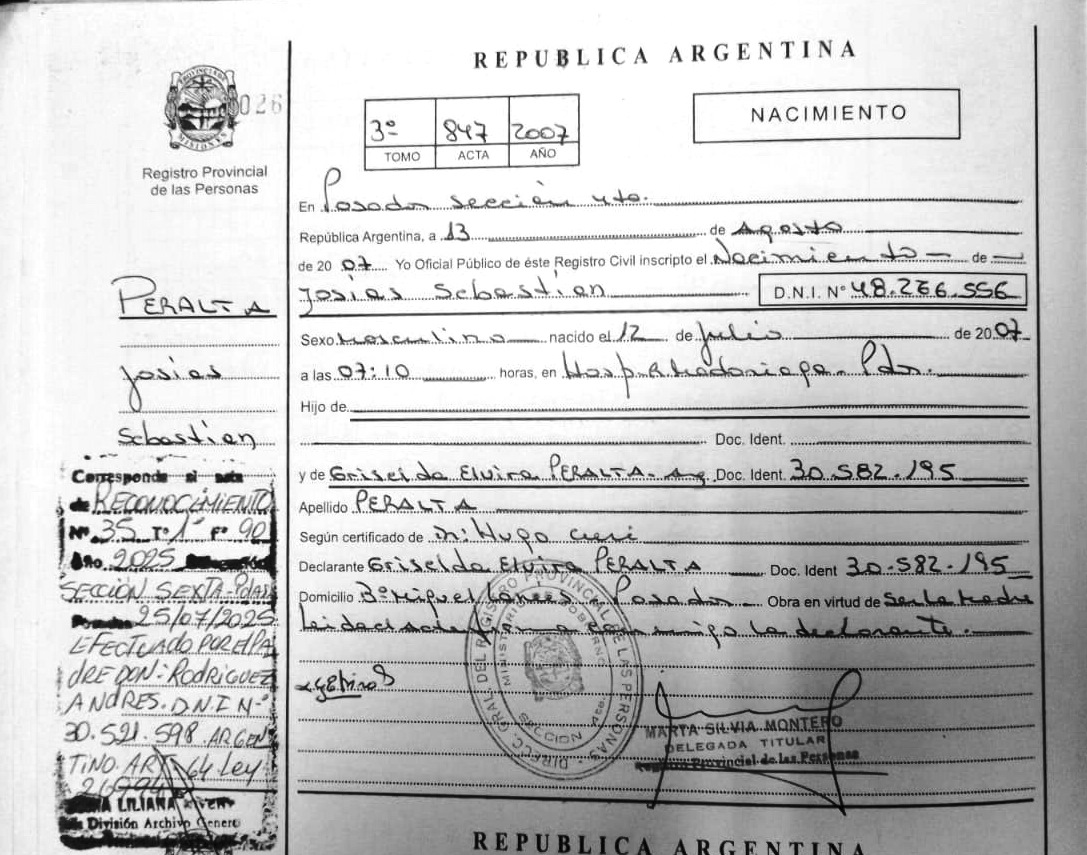 REPUBLICA ARGENTINA
026
PROVINCIA DE
MISIONES
Registro Provincial
de las Personas
3º 847 2007
TOMO ACTA AÑO
NACIMIENTO
En Posadas sección 4ta.
República Argentina, a 13 de Agosto
de 2007 Yo Oficial Público de éste Registro Civil inscripto el Nacimiento de
Josías Sebastian D.N.I. Nº 48.266.556
Sexo Masculino nacido el 12 de Julio de 2007
a las 07:10 horas, en Hosp. R. Madariaga - Pdas.
Hijo de
Doc. Ident.
y de Griselda Elvira PERALTA - Arg. Doc. Ident 30.582.195
Apellido PERALTA
Según certificado de Dr: Hugo
Declarante Griselda Elvira PERALTA Doc. Ident 30.582.195
Domicilio Bº Miguel Posadas Obra en virtud de Ser la Madre
Leida el acta firma conmigo la declarante.
PERALTA
Josías
Sebastian
Corresponde al acta
de RECONOCIMIENTO
Nº 35 Tº 1º Fº 90
Año 2025
SECCIÓN SEXTA-Pdas
25/07/2025
EFECTUADO POR EL PA
DRE DON: RODRIGUEZ
ANDRES. D.N.I Nº
30.521.598 ARGEN
TINO. ART 64 Ley
26994
LILIANA
División Archivo General
DIRECC. GRAL. DEL REGISTRO PROVINCIAL DE LAS PERSONAS
MINISTERIO DE GOBIERNO
SECCION 4ta.
MARTA SILVIA MONTERO
DELEGADA TITULAR
Registro Provincial de las Personas
REPUBLICA ARGENTINA